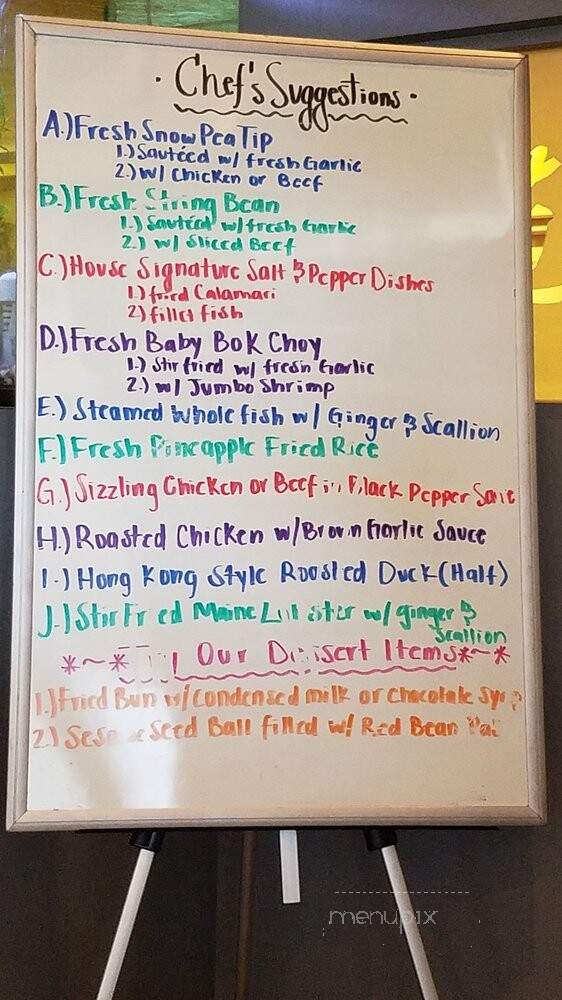 · Chef's Suggestions ·
A.) Fresh Snow Pea Tip
1.) Sautéed w/ fresh Garlic
2.) w/ Chicken or Beef
B.) Fresh String Bean
1.) Sautéed w/ fresh Garlic
2.) w/ Sliced Beef
C.) House Signature Salt & Pepper Dishes
1.) fried Calamari
2) fillet fish
D.) Fresh Baby Bok Choy
1.) Stir fried w/ fresh Garlic
2.) w/ Jumbo Shrimp
E.) Steamed Whole fish w/ Ginger & Scallion
F.) Fresh Pineapple Fried Rice
G.) Sizzling Chicken or Beef in Black Pepper Sauce
H.) Roasted Chicken w/ Brown Garlic Sauce
I.) Hong Kong Style Roasted Duck (Half)
J.) Stir Fried Maine Lobster w/ ginger &
Scallion
*~* Our Dessert Items *~*
1.) Fried Bun w/ Condensed milk or Chocolate
2.) Sesame Seed Ball filled w/ Red Bean
menupix